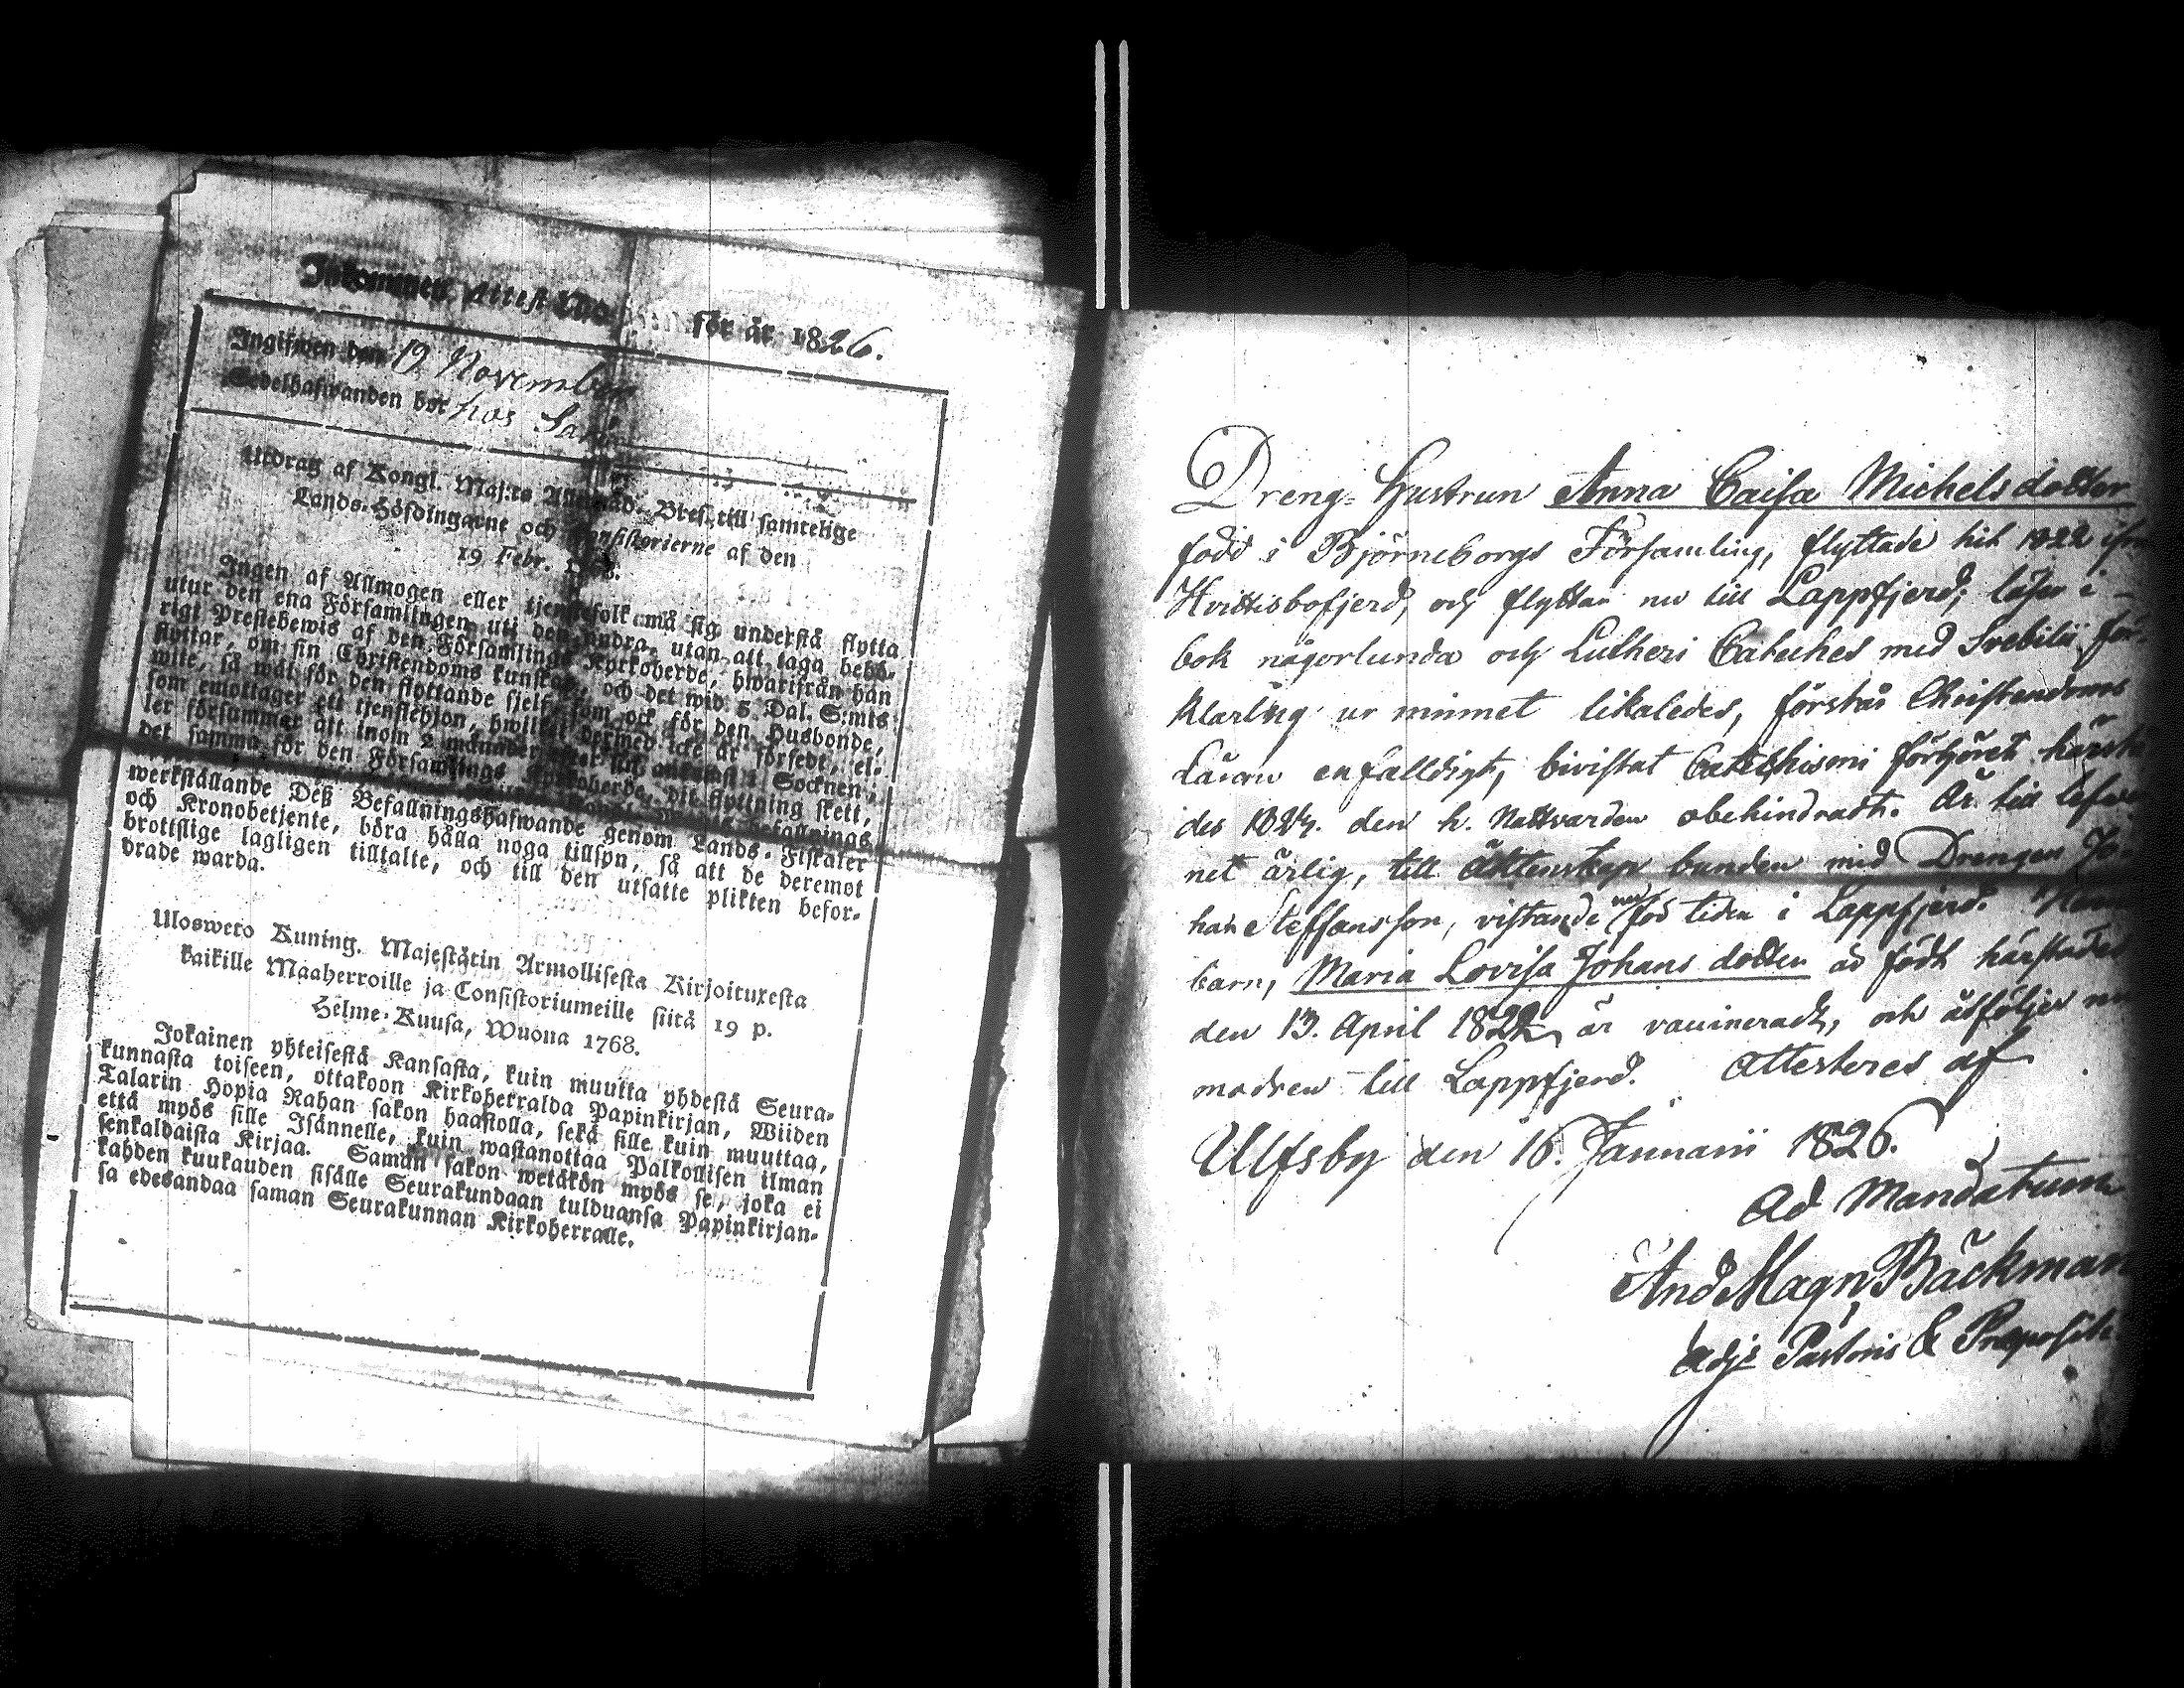 Inkommen Attest för år 1826.
Ingifwen den 19 November
Sedelhafwanden bor hos
Utdrag af Kongl. Maj:ts Bref till samtelige
Lands-Höfdingarne och Consistorierne af den
19 Febr.
Ingen af Allmogen eller tjenstefolk må sig understå flytta
utur den ena Församlingen uti den andra, utan att taga behö-
rigt Prestebewis af den Församlings Kyrkoherde, hwarifrån han
flyttar, om sin Christendoms kunskap, och det wid 5 Dal. S:mts
wite, så wäl för den flyttande sjelf, som ock för den Husbonde,
som emottager ett tjenstehjon, hwilket dermed icke är försedt, el-
ler försummar att inom 2 månader efter sin ankomst i Socknen,
det samma för den Församlings Kyrkoherde, dit flyttning skett,
Befallnings
werkställande Deß Befallningshafwande genom Lands-Fiskaler
och Kronobetjente, böra hålla noga tillsyn, så att de deremot
brottslige lagligen tilltalte, och till den utsatte plikten befor-
drade warda.
Ulosweto Kuning. Majestätin Armollisesta Kirjoituxesta
kaikille Maaherroille ja Consistoriumeille siitä 19 p.
Helme-Kuusa, Wuona 1768.
Jokainen yhteisestä Kansasta, kuin muutta yhdestä Seura-
kunnasta toiseen, ottakoon Kirkoherralda Papinkirjan, Wiiden
Talarin Hopia Rahan sakon haastolla, sekä sille kuin muuttaa,
että myös sille Isännelle, kuin wastanottaa Palkollisen ilman
senkaldaista Kirjaa. Samän sakon wetäkön myös se, joka ei
kahden kuukauden sisälle Seurakundaan tulduansa Papinkirjan-
sa edesandaa saman Seurakunnan Kirkoherralle.
Dreng-Hustrun Anna Caisa Michelsdotter
född i Björneborgs Församling, flyttade hit 1822 ifrån
Hvittisbofjerd, och flyttar nu till Lappfjerd; läser i
bok någorlunda och Lutheri Cateches med Svebilii för-
klaring ur minnet likaledes, förstår Christendoms
Läran enfalldigt, bivistat Catechismi förhöret härstä
des 1824. den h. Nattvarden obehindradt. Är till lefver
net ärlig, till äktenskap bunden med Drengen Jo-
han Steffansson, vistande nu för tiden i Lappfjerd.
barn, Maria Lovisa Johans dotter är född härstädes
den 13. April 1822, är vaccineradt, och åtföljer nu
modren till Lappfjerd. Attesteres af
Ulfsby den 16. Januarii 1826.
Ad Mandatum
And Magn Bäckman
Adj: Pastoris & Præposit.